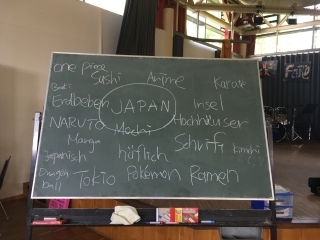 one piece
Sushi
Anime
Karate
Erdbeben
JAPAN
Insel
NARUTO
Mochi
Hochhäuser
Manga
Schrift
Japanisch
höflich
Dragon
Ball
Tokio
Pokémon
Ramen